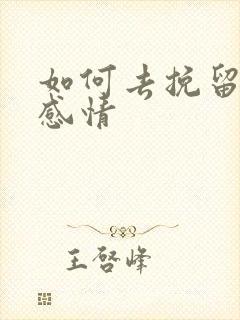 如何去挽留
感情
王啓峰